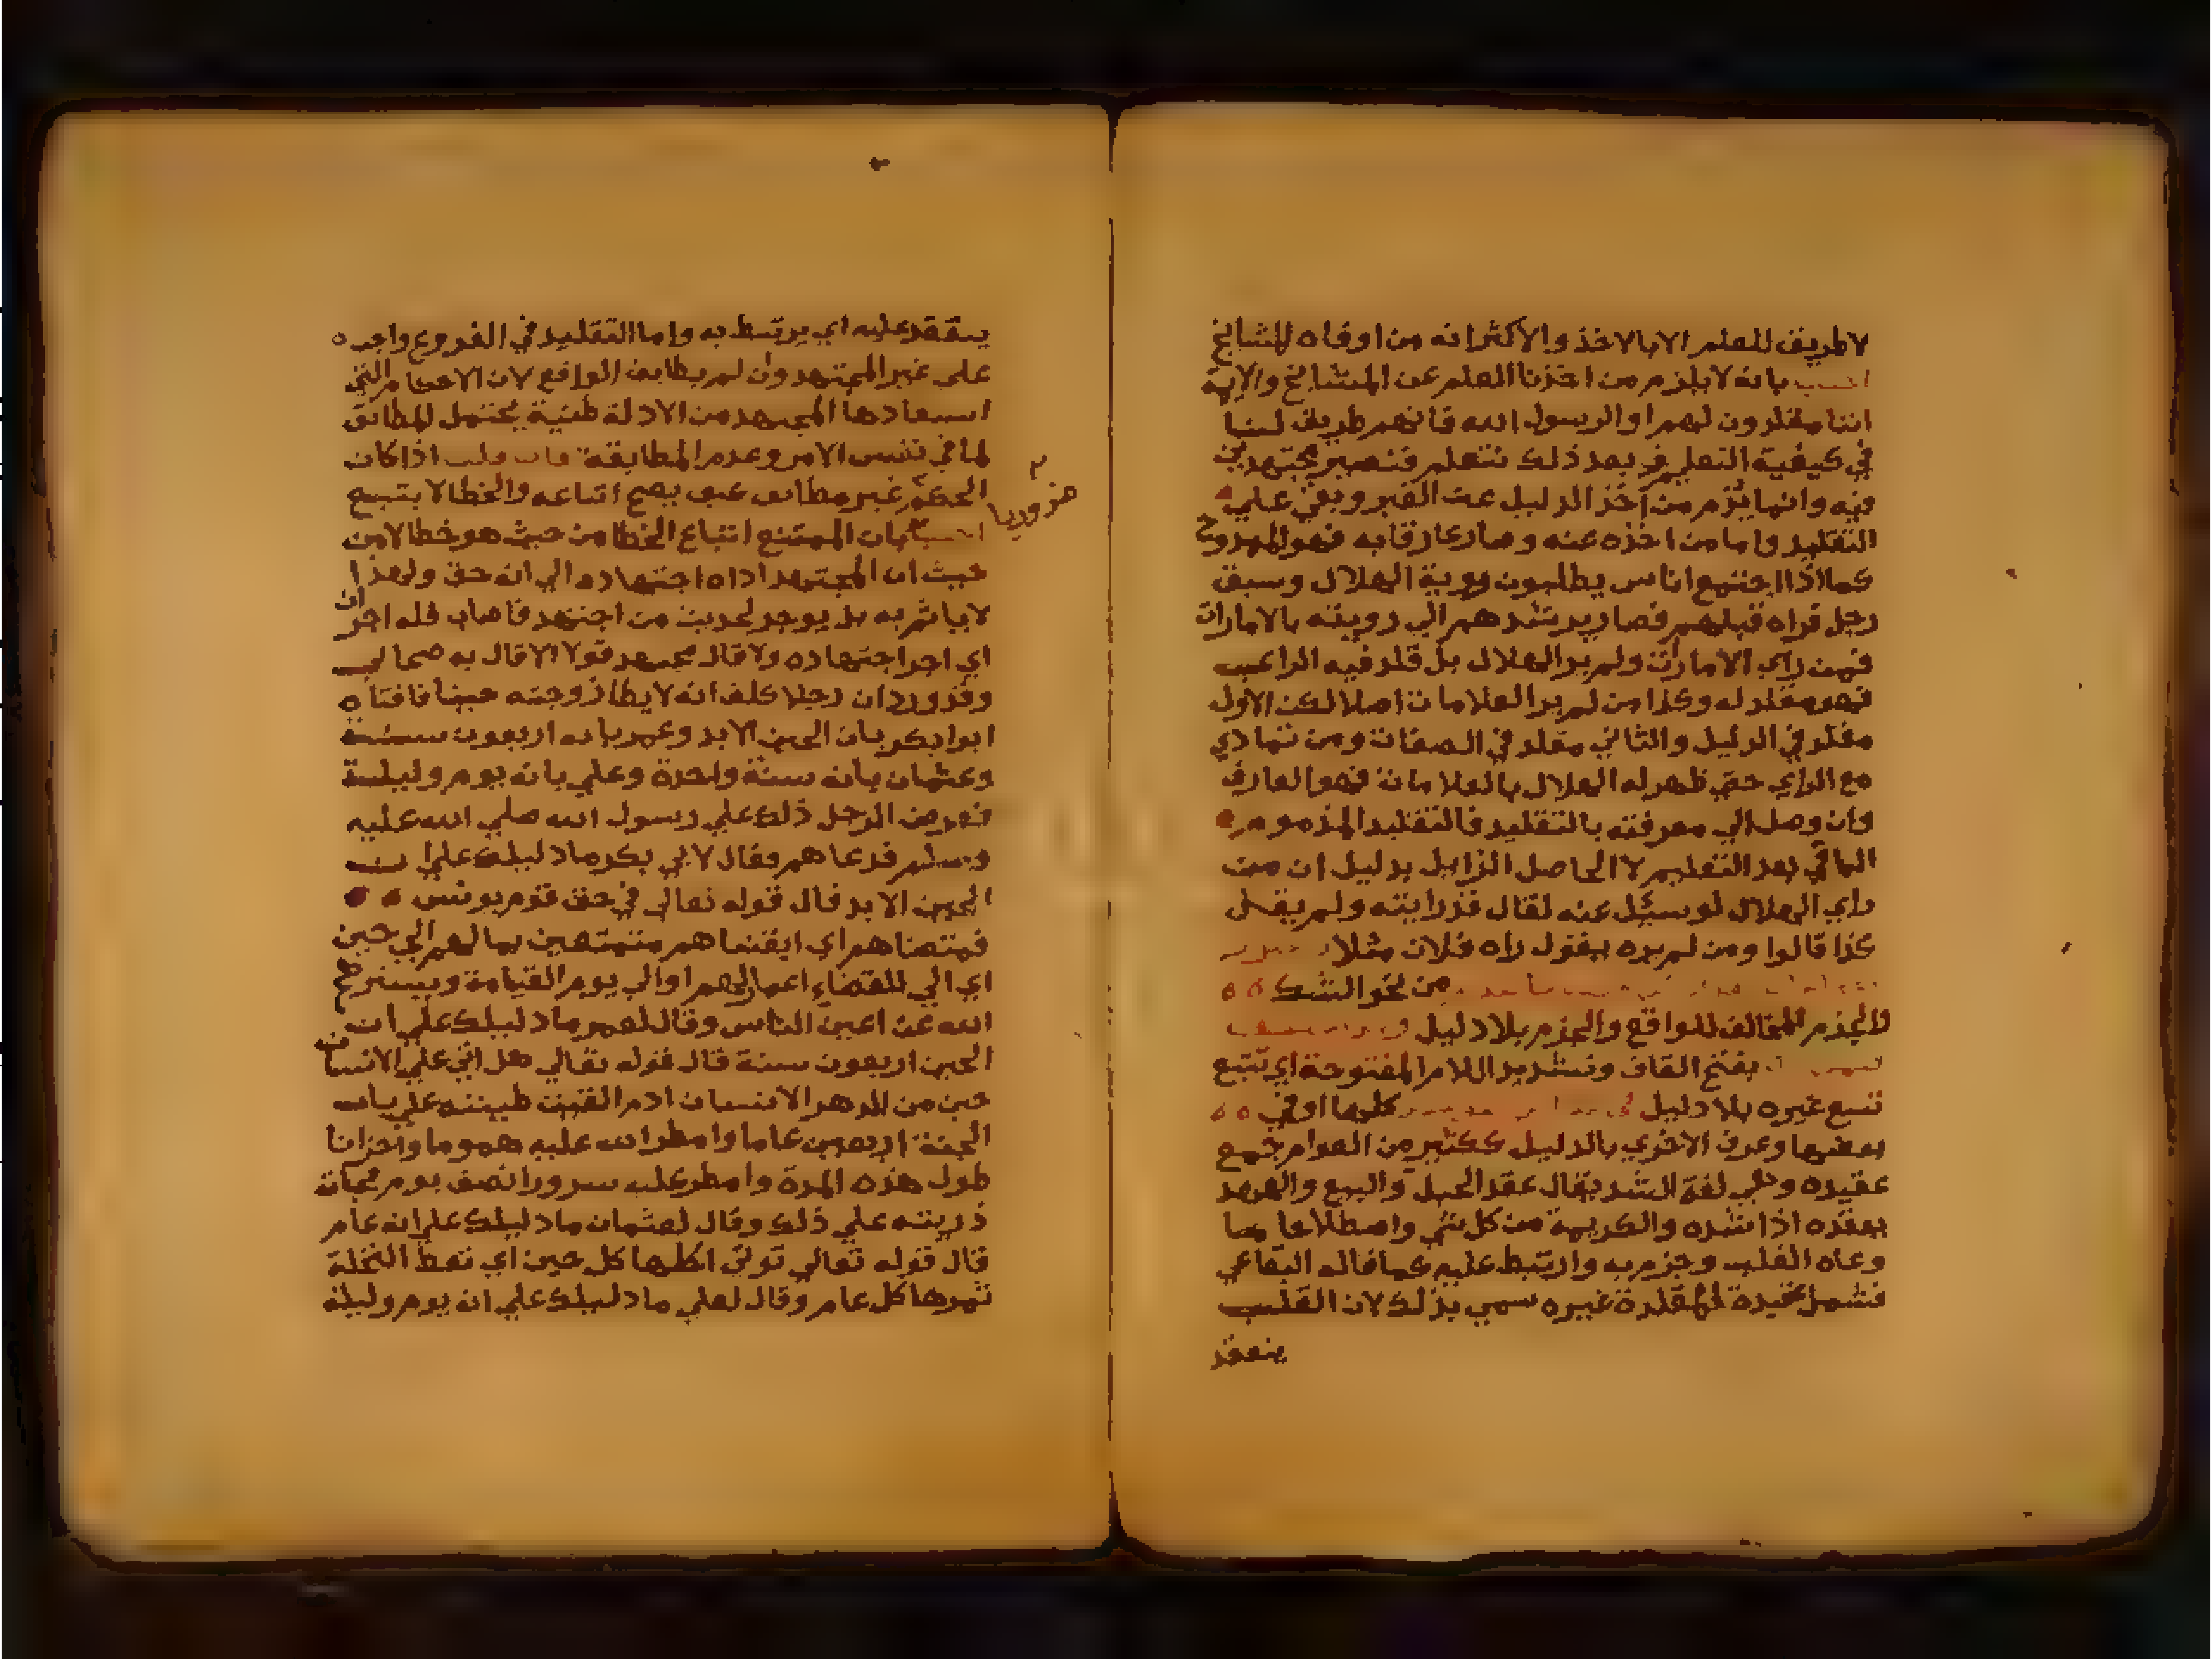 لا طريق للعلم الا بالاخذ والاكثر انه من افواه المشايخ
بانه لا يلزم من اخذنا العلم عن المشايخ والاية
اننا مقلدون لهم او الرسول الله فانهم طريق لنا
في كيفية التعليم بعد ذلك نتعلم فنصير مجتهدين
فيه وانما يذم من اخذ الدليل عن الغير وبقي علي
التقليد واما من اخذه عنه وصار عارفا به فهو الممدوح
كما اذا اجتمع اناس يطلبون روية الهلال وسبق
رجل فراه قبلهم فصار يرشدهم الي رويته بالامارات
فمن راي الامارات ولم ير الهلال بل قلد فيه الراي
فهو مقلد له وكذا من لم ير العلامات اصلا لكن الاول
مقلد في الدليل والثاني مقلد في الصفات ومن تمادي
مع الراي حتي ظهر له الهلال بالعلامات فهو العارف
وان وصل الي معرفته بالتقليد فالتقليد المذموم
الباقي بعد التعليم لا الحاصل الزايل بدليل ان من
راي الهلال لو سيل عنه لقال قد رايته ولم يقل
كذا قالوا ومن لم يره يقول راه فلان مثلا
من نحو الشك
والجزم المخالف للواقع والجزم بلا دليل
بفتح القاف وتشديد اللام المفتوحة اي تتبع
تتبع غيره بلا دليل كلها او في
بعضها وعرف الاخري بالدليل ككثير من العوام جمع
عقيدة وهي لغة الشد يقال عقد الحبل والبيع والعهد
يعقده اذا شده والكريمة من كل شي واصطلاحا ما
وعاه القلب وجزم به وارتبط عليه كما قاله البقاعي
فشمل عقيدة المقلد وغيره سمي بذلك لان القلب
ينعقد
ينعقد عليه اي يرتبط به واما التقليد في الفروع واجب
علي غير المجتهد وان لم يطابق الواقع لان الاحكام التي
استفادها المجتهد من الادلة ظنية يحتمل المطابق
لما في نفس الامر وعدم المطابقة فان قلت اذا كان
الحكم غير مطابق كيف يصح اتباعه والخطا لا يتبع
بان الممتنع اتباع الخطا من حيث هو خطا لا من
حيث ان المجتهد اداه اجتهاده الي انه حق ولهذا
لا ياثم به بل يوجر لحديث من اجتهد فاصاب فله اجران
اي اجر اجتهاده ولا قال مجتهد قولا الا قال به صحابي
وقد ورد ان رجلا حلف انه لا يطا زوجته حينا فافتاه
ابوا بكر بان الحين الابد وعمر بانه اربعون سنة
وعثمان بانه سنة واحدة وعلي بانه يوم وليلة
فعرض الرجل ذلك علي رسول الله صلي الله عليه
وسلم فدعاهم فقال لابي بكر ما دليلك علي ان
الحين الابد قال قوله تعالي في حق قوم يونس
فمتعناهم اي ابقيناهم متمتعين بما لهم الي حين
اي الي انقضاء اعمارهم او الي يوم القيامة
الله عن اعين الناس وقال لعمر ما دليلك علي ان
الحين اربعون سنة قال قوله تعالي هل اتي علي الانسان
حين من الدهر الانسان ادم القيت طينته علي باب
الجنة اربعين عاما وامطر الله عليه هموما واحزانا
طول هذه المدة وامطر عليه سرورا نصف يوم
ذريته علي ذلك وقال لعثمان ما دليلك علي انه عام
قال قوله تعالي توتي اكلها كل حين اي تعط النخلة
ثمرها كل عام وقال لعلي ما دليلك علي انه يوم وليلة